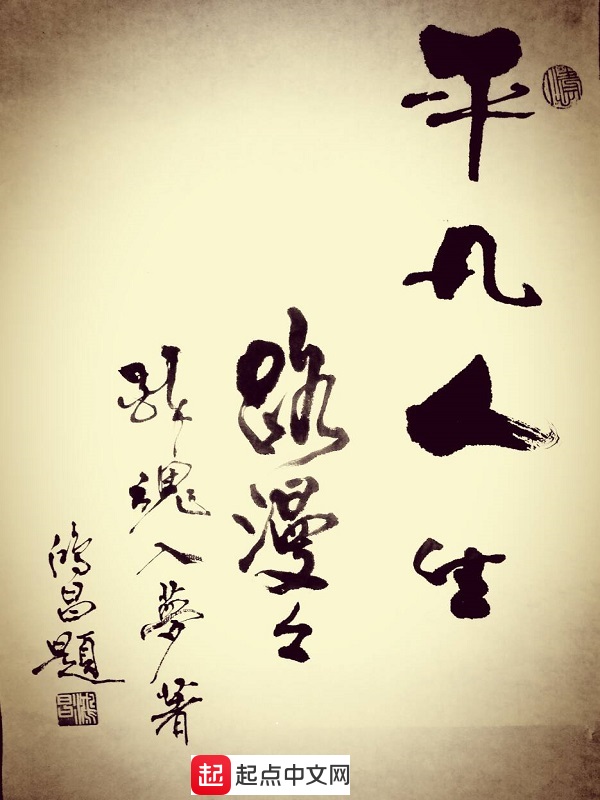 平凡人生
路漫々
魂入夢著
鴻昌題
起 起点中文网